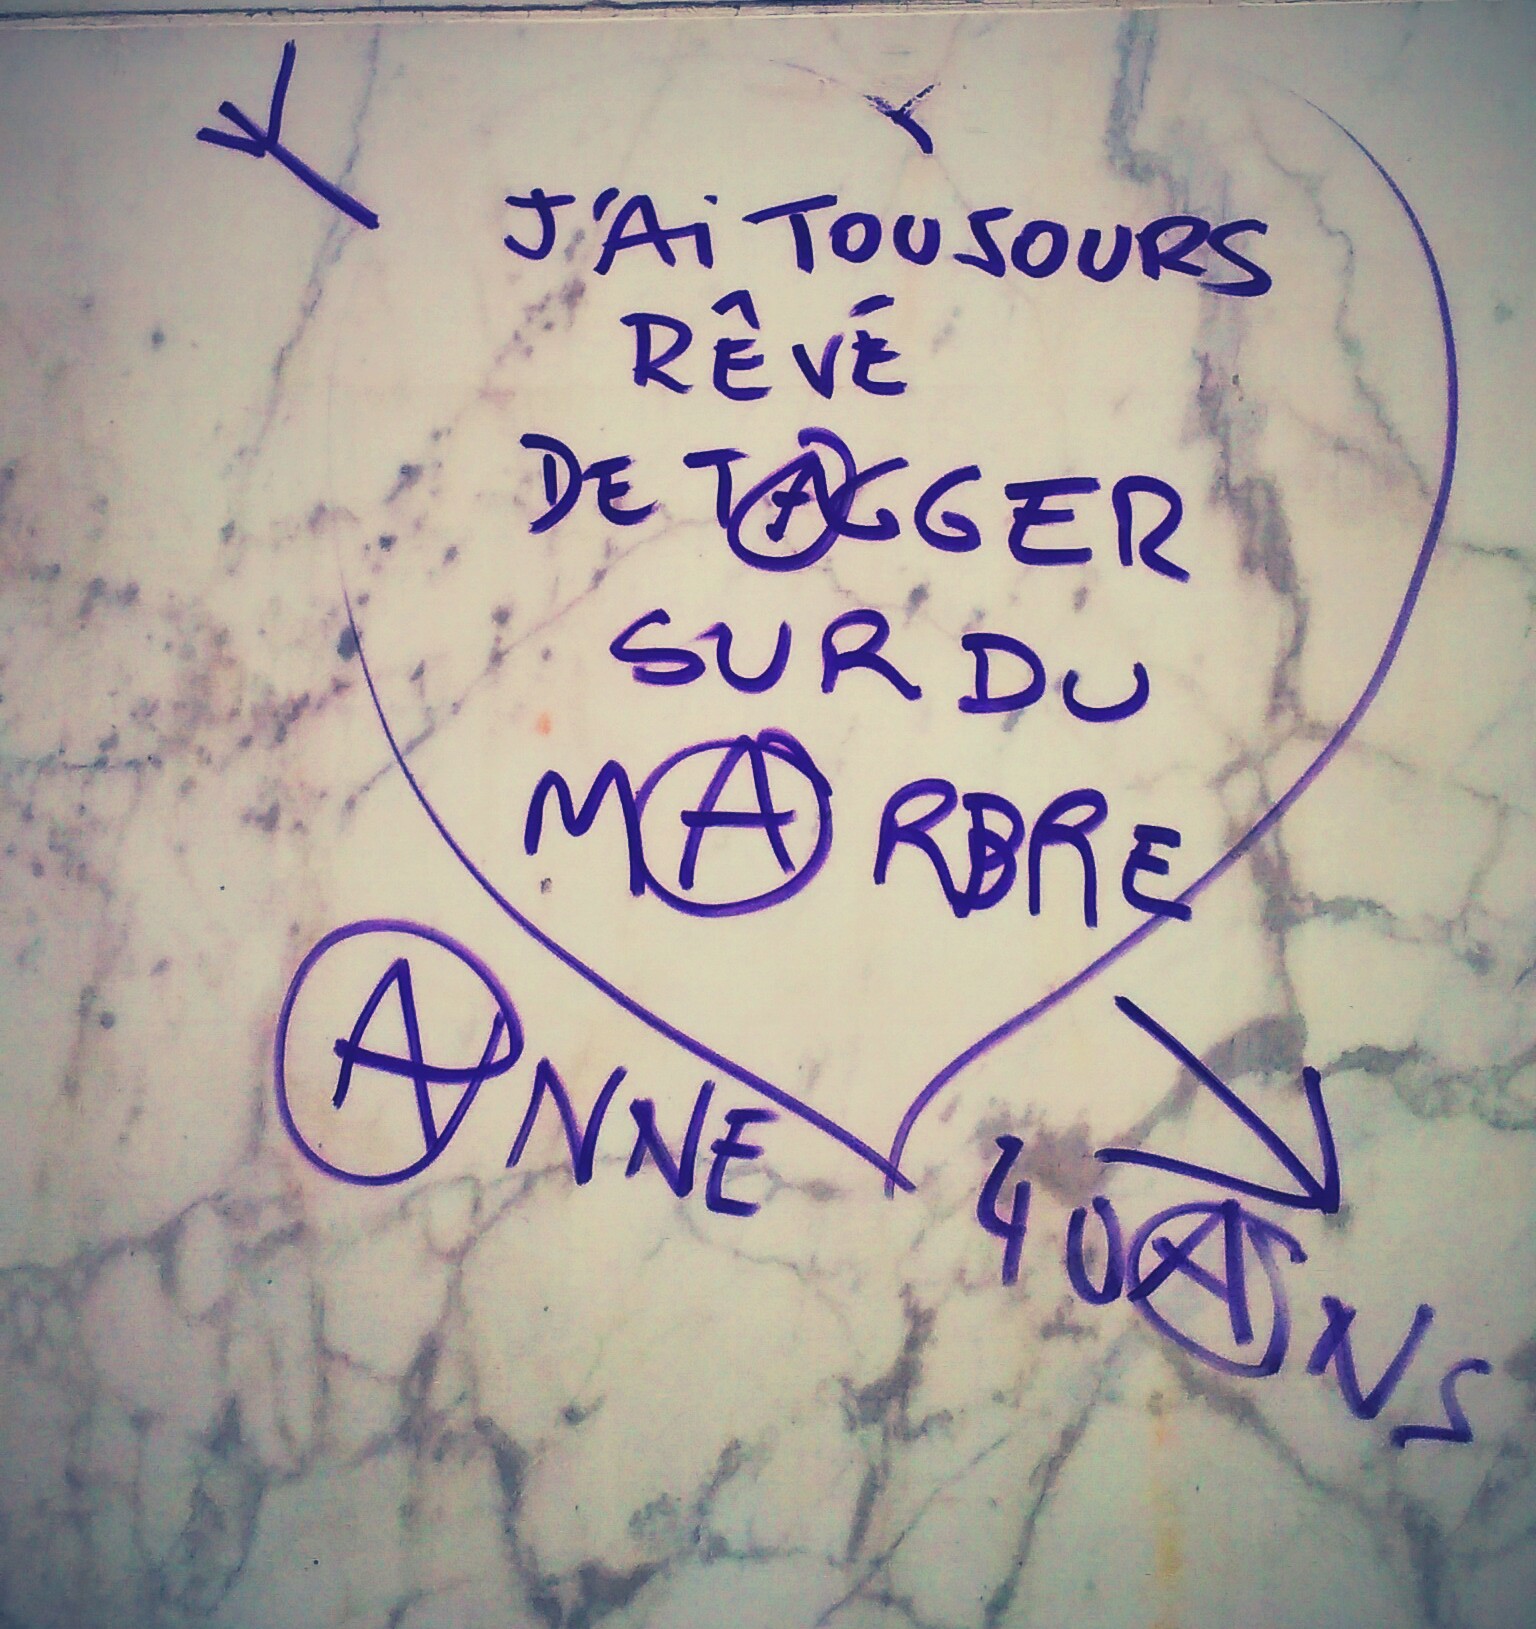 J'Ai TOUJOURS
RÊVÉ
DE TAGGER
SUR DU
MARBRE
ANNE
40 ANS